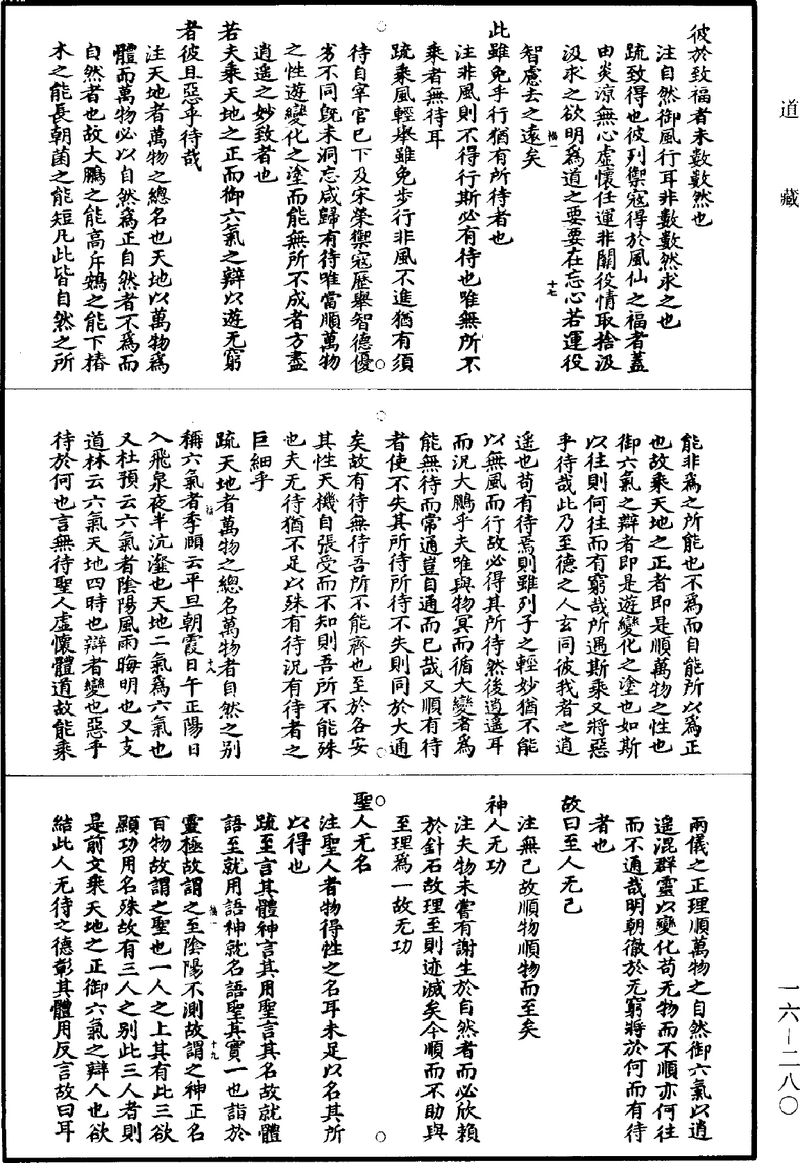 道藏
彼於致福者未數數然也
注自然御風行耳非數數然求之也
疏致得也彼列禦寇得於風仙之福者蓋
由炎涼無心虛懷任運非關役情取捨汲
汲求之欲明為道之要要在忘心若運役
智慮去之遠矣
此雖免乎行猶有所待者也
注非風則不得行斯必有待也唯無所不
乘者無待耳
疏乘風輕舉雖免步行非風不進猶有須
待自宰官已下及宋榮禦寇歷舉智德優
劣不同既未洞忘咸歸有待唯當順萬物
之性遊變化之塗而能無所不成者方盡
逍遥之妙致者也
若夫乘天地之正而御六氣之辯以遊无窮
者彼且惡乎待哉
注天地者萬物之總名也天地以萬物為
體而萬物必以自然為正自然者不為而
自然者也故大鵬之能高斥鴳之能下椿
木之能長朝菌之能短凡此皆自然之所
能非為之所能也不為而自能所以為正
也故乘天地之正者即是順萬物之性也
御六氣之辯者即是遊變化之塗也如斯
以往則何往而有窮哉所遇斯乘又將惡
乎待哉此乃至德之人玄同彼我者之逍
遥也苟有待焉則雖列子之輕妙猶不能
以無風而行故必得其所待然後逍遥耳
而況大鵬乎夫唯與物冥而循大變者為
能無待而常通豈自通而已哉又順有待
者使不失其所待所待不失則同於大通
矣故有待無待吾所不能齊也至於各安
其性天機自張受而不知則吾所不能殊
也夫无待猶不足以殊有待況有待者之
巨細乎
疏天地者萬物之總名萬物者自然之別
稱六氣者李頤云平旦朝霞日午正陽日
入飛泉夜半沆瀣也天地二氣為六氣也
又杜預云六氣者陰陽風雨晦明也又支
道林云六氣天地四時也辯者變也惡乎
待於何也言無待聖人虛懷體道故能乘
兩儀之正理順萬物之自然御六氣以逍
遥混群靈以變化苟无物而不順亦何往
而不通哉明朝徹於无窮將於何而有待
者也
故曰至人无己
注無己故順物順物而至矣
神人无功
注夫物未嘗有謝生於自然者而必欣賴
於針石故理至則迹滅矣今順而不助與
至理為一故无功
聖人无名
注聖人者物得性之名耳未足以名其所
以得也
疏至言其體神言其用聖言其名故就體
語至就用語神就名語聖其實一也詣於
靈極故謂之至陰陽不測故謂之神正名
百物故謂之聖也一人之上其有此三欲
顯功用名殊故有三人之別此三人者則
是前文乘天地之正御六氣之辯人也欲
結此人无待之德彰其體用反言故曰耳
一六-二八〇